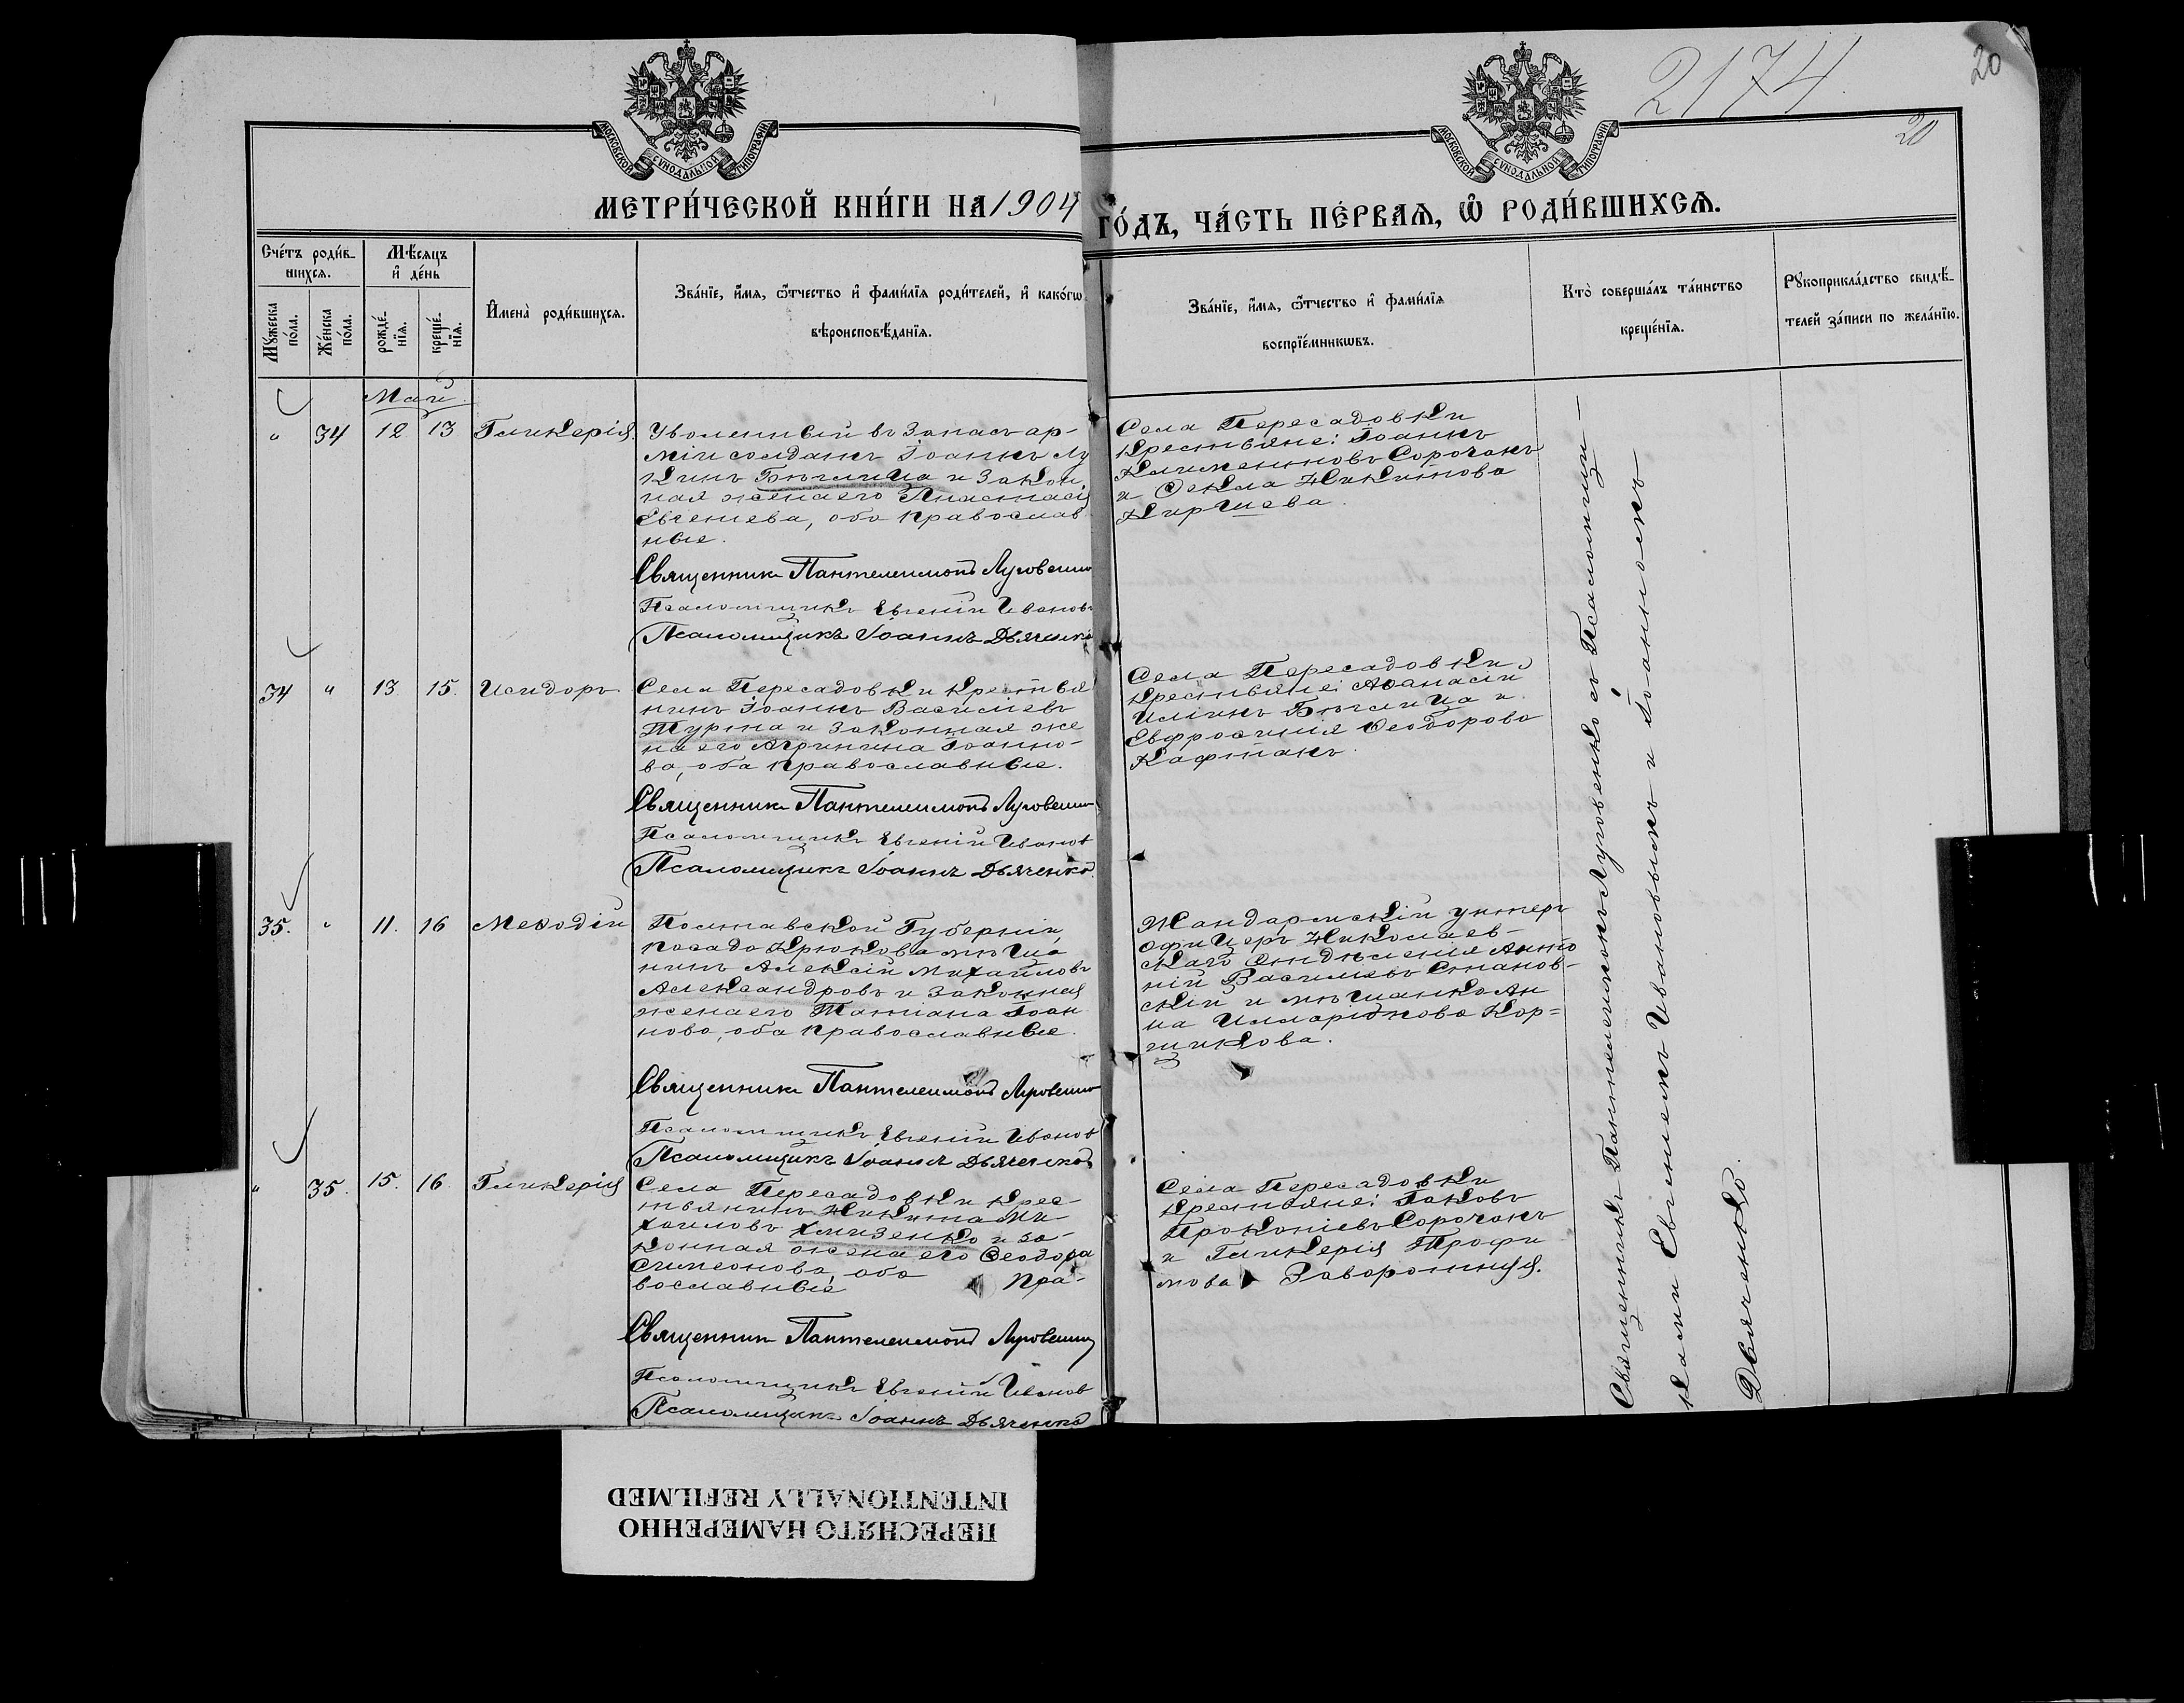 2174
20
20
МОСКОВСКОЙ СѴНОДАЛЬНОЙ ТИПОГРАФІИ
МОСКОВСКОЙ СѴНОДАЛЬНОЙ ТИПОГРАФІИ
МЕТРИ́ЧЕСКОЙ КНИ́ГИ НА 1904 ГО́ДЪ, ЧА́СТЬ ПЕ́РВАѦ, Ѽ РОДИ́ВШИХСѦ.
Сче́тъ роди́в-
шихсѧ.
Мѣ́сѧцъ
и҆ де́нь
Мꙋ́жеска
по́ла.
Же́нска
по́ла.
рожде́-
нїѧ.
креще́-
нїѧ.
И҆мена̀ роди́вшихсѧ.
Зва́нїе, и҆́мѧ, ѻ҆́тчество и҆ фами́лїѧ роди́телей, и҆ како́гѡ
вѣроисповѣ́данїѧ.
Зва́нїе, и҆́мѧ, ѻ҆́тчество и҆ фами́лїѧ
воспрїе́мникѡвъ.
Кто̀ соверша́лъ та́инство
креще́нїѧ.
Рꙋкоприкла́дство свидѣ́-
телей за́писи по жела́нїю.
Май
" 34 12 13 Гликерія.
Уволенный въ запасъ ар-
міи солдатъ Іоаннъ Лу
кинъ Бѣглица и закон,
ная жена его Анастасія
Евгеніева, оба православ
ные.
Священникъ Пантелеимонъ Луговенко
Псаломщикъ Евгеній Ивановъ
Псаломщикъ Іоаннъ Дьяченко
Села Пересадовки
крестьяне: Іоаннъ
Климентовъ Сорочанъ
и Ѳекла Никитова
Киршева.
34 " 13 15. Исидоръ
Села Пересадовки крестья
нинъ Іоаннъ Василіевъ
Турта и законная же
на его Агрипина Іоанно-
ва, оба православные.
Священникъ Пантелеимонъ Луговенко
Псаломщикъ Евгеній Иванов
Псаломщикъ Іоаннъ Дьяченко
Села Пересадовки
крестьяне: Аѳанасій
Иліинъ Бѣглица и
Евфросинія Ѳеодорова
Кафтанъ.
35. " 11. 16 Меѳодій
Полтавской Губерніи
посада Крюкова мѣща
нинъ Алексій Михайловъ
Александровъ и законная
жена его Татіана Іоан
нова, оба православные.
Священникъ Пантелеимонъ Луговенко
Псаломщикъ Евгеній Иванов
Псаломщикъ Іоаннъ Дьяченко
Жандармскій унтеръ
офицеръ Николаев-
скаго отдѣленія Анто
ній Василіевъ Станов-
скій и мѣщанка Ан
на Илларіонова Кор=
щикова.
" 35. 15. 16. Гликерія
Села Пересадовки крес-
тьянинъ Никита Ми-
хаиловъ Хмизенко и за-
конная жена его Ѳеодора
Симеонова, оба Пра-
вославные
Священникъ Пантелеимонъ Луговенко
Псаломщикъ Евгеній Иванов
Псаломщикъ Іоаннъ Дьяченко
Села Пересадовки
крестьяне: Іаковъ
Прокопіевъ Сорочанъ
и Гликерія Трофи
мова Заворотняя.
Священникъ Пантелеимонъ Луговенко съ Псаломщи-
ками Евгеніемъ Ивановымъ и Іоанномъ
Дьяченко.
ПЕРЕСНЯТО НАМЕРЕННО
INTENTIONALLY REFILMED